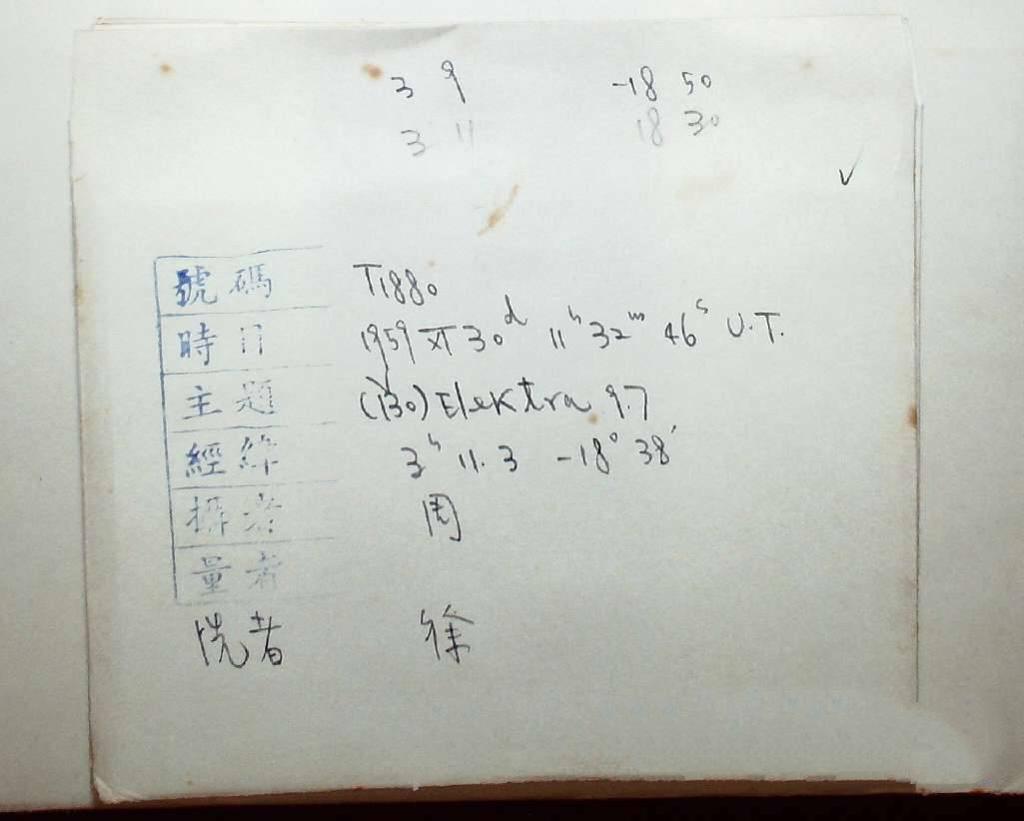 3 9 -18 50
3 11 18 30
✓
號碼 T1880
時日 1959 XI 30ᵈ 11ʰ 32ᵐ 46ˢ U.T.
主題 (130) Elektra 9.7
經緯 3ʰ 11.3 -18° 38′
攝者 周
量者
洗者 徐